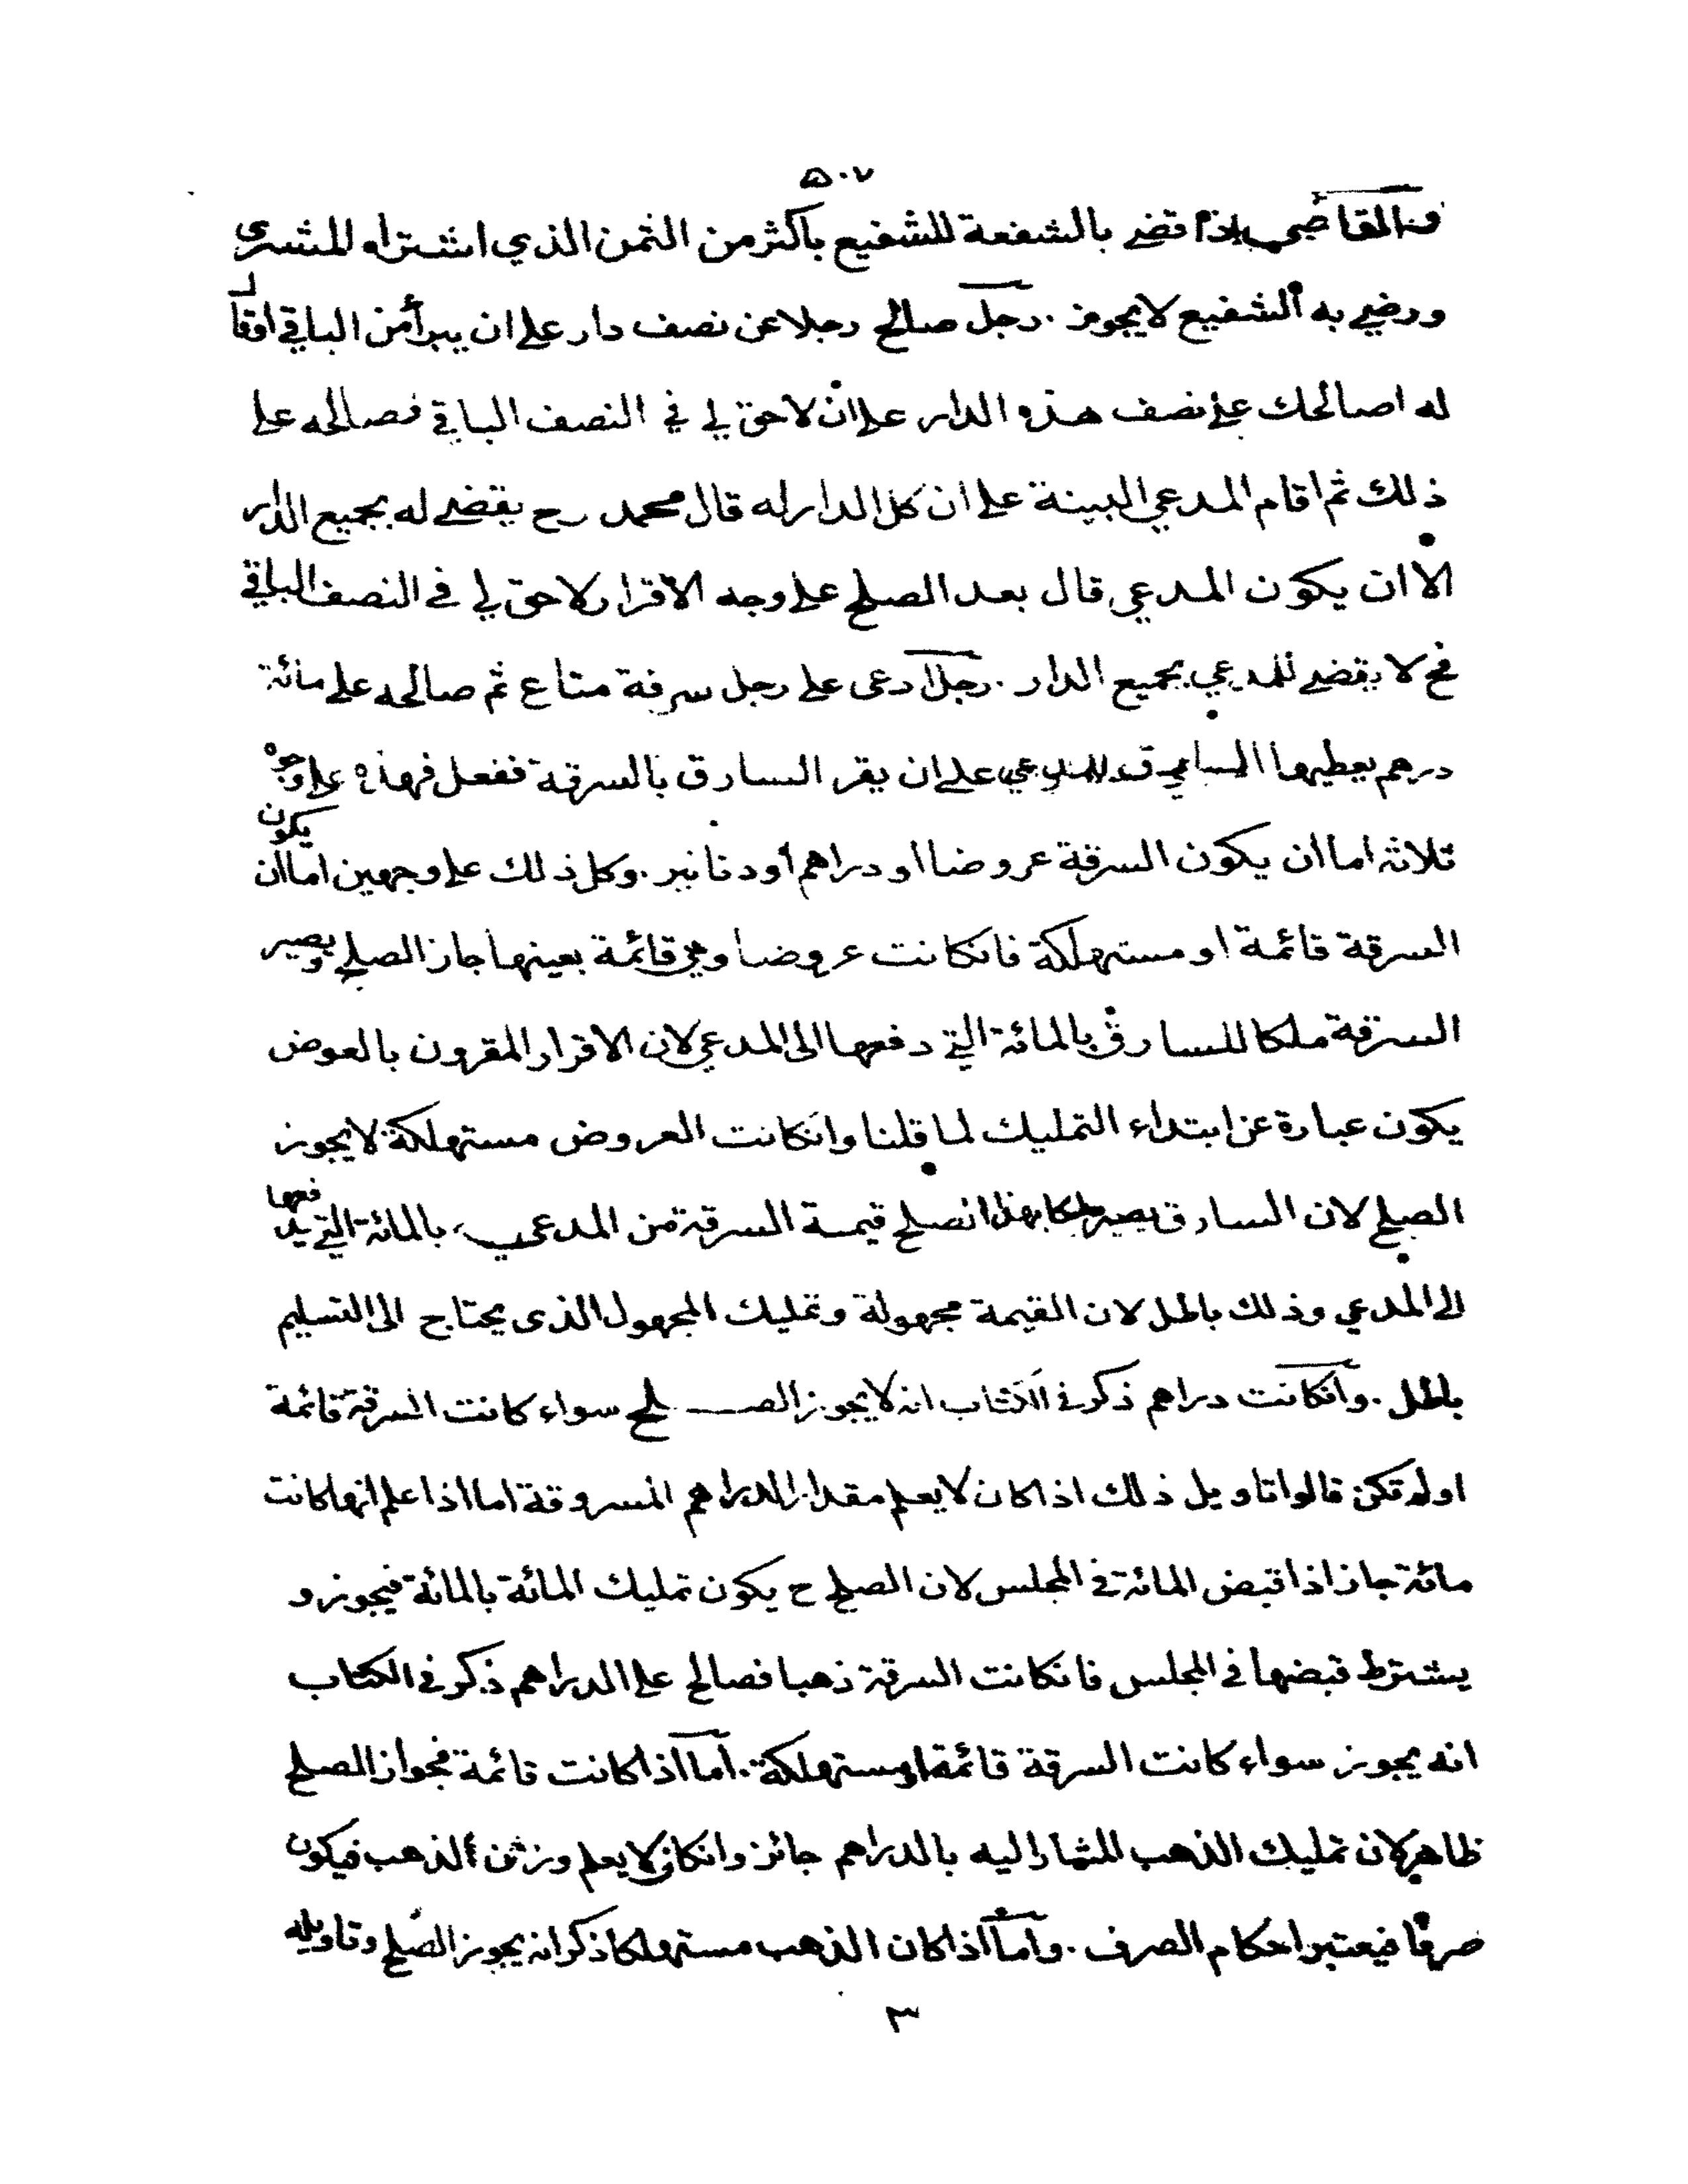 ٥٠٧
القاضي اذا قضى بالشفعة للشفيع باكثر من الثمن الذي اشتراه المشتري
ورضي به الشفيع لا يجوز . رجل صالح رجلا عن نصف دار على ان يبرأ من الباقي او قال
له اصالحك على نصف هذه الدار على ان لا حق لي في النصف الباقي فصالحه على
ذلك ثم اقام المدعي البينة على ان كل الدار له قال محمد رح يقضى له بجميع الدار
الا ان يكون المدعي قال بعد الصلح على وجه الاقرار لا حق لي في النصف الباقي
فح لا يقضى للمدعي بجميع الدار . رجل ادعى على رجل سرقة متاع ثم صالحه على مائة
درهم يعطيها السارق للمدعي على ان يقر السارق بالسرقة ففعل فهذه على وجوه
ثلاثة اما ان يكون السرقة عروضا او دراهم او دنانير . وكل ذلك على وجهين اما ان يكون
السرقة قائمة او مستهلكة فانكانت عروضا وهي قائمة بعينها جاز الصلح ويصير
السرقة ملكا للسارق بالمائة التي دفعها الى المدعي لان الاقرار المقرون بالعوض
يكون عبارة عن ابتداء التمليك لما قلنا وانكانت العروض مستهلكة لا يجوز
الصلح لان السارق يصير ملكا بهذا الصلح قيمة السرقة من المدعي بالمائة التي يدفعها
الى المدعي وذلك باطل لان القيمة مجهولة وتمليك المجهول الذى يحتاج الى التسليم
باطل . وانكانت دراهم ذكر في الكتاب انه لا يجوز الصلح سواء كانت السرقة قائمة
او لم تكن قالوا تاويل ذلك اذا كان لا يعلم مقدار الدراهم المسروقة اما اذا علم انها كانت
مائة جاز اذا قبض المائة في المجلس لان الصلح ح يكون تمليك المائة بالمائة فيجوز و
يشترط قبضها في المجلس فانكانت السرقة ذهبا فصالح على الدراهم ذكر في الكتاب
انه يجوز سواء كانت السرقة قائمة او مستهلكة . اما اذا كانت قائمة فجواز الصلح
ظاهر لان تمليك الذهب المشار اليه بالدراهم جائز وانكان لا يعلم وزن الذهب فيكون
صرفا فيعتبر احكام الصرف . واما اذا كان الذهب مستهلكا ذكر انه يجوز الصلح وتاويله
٣